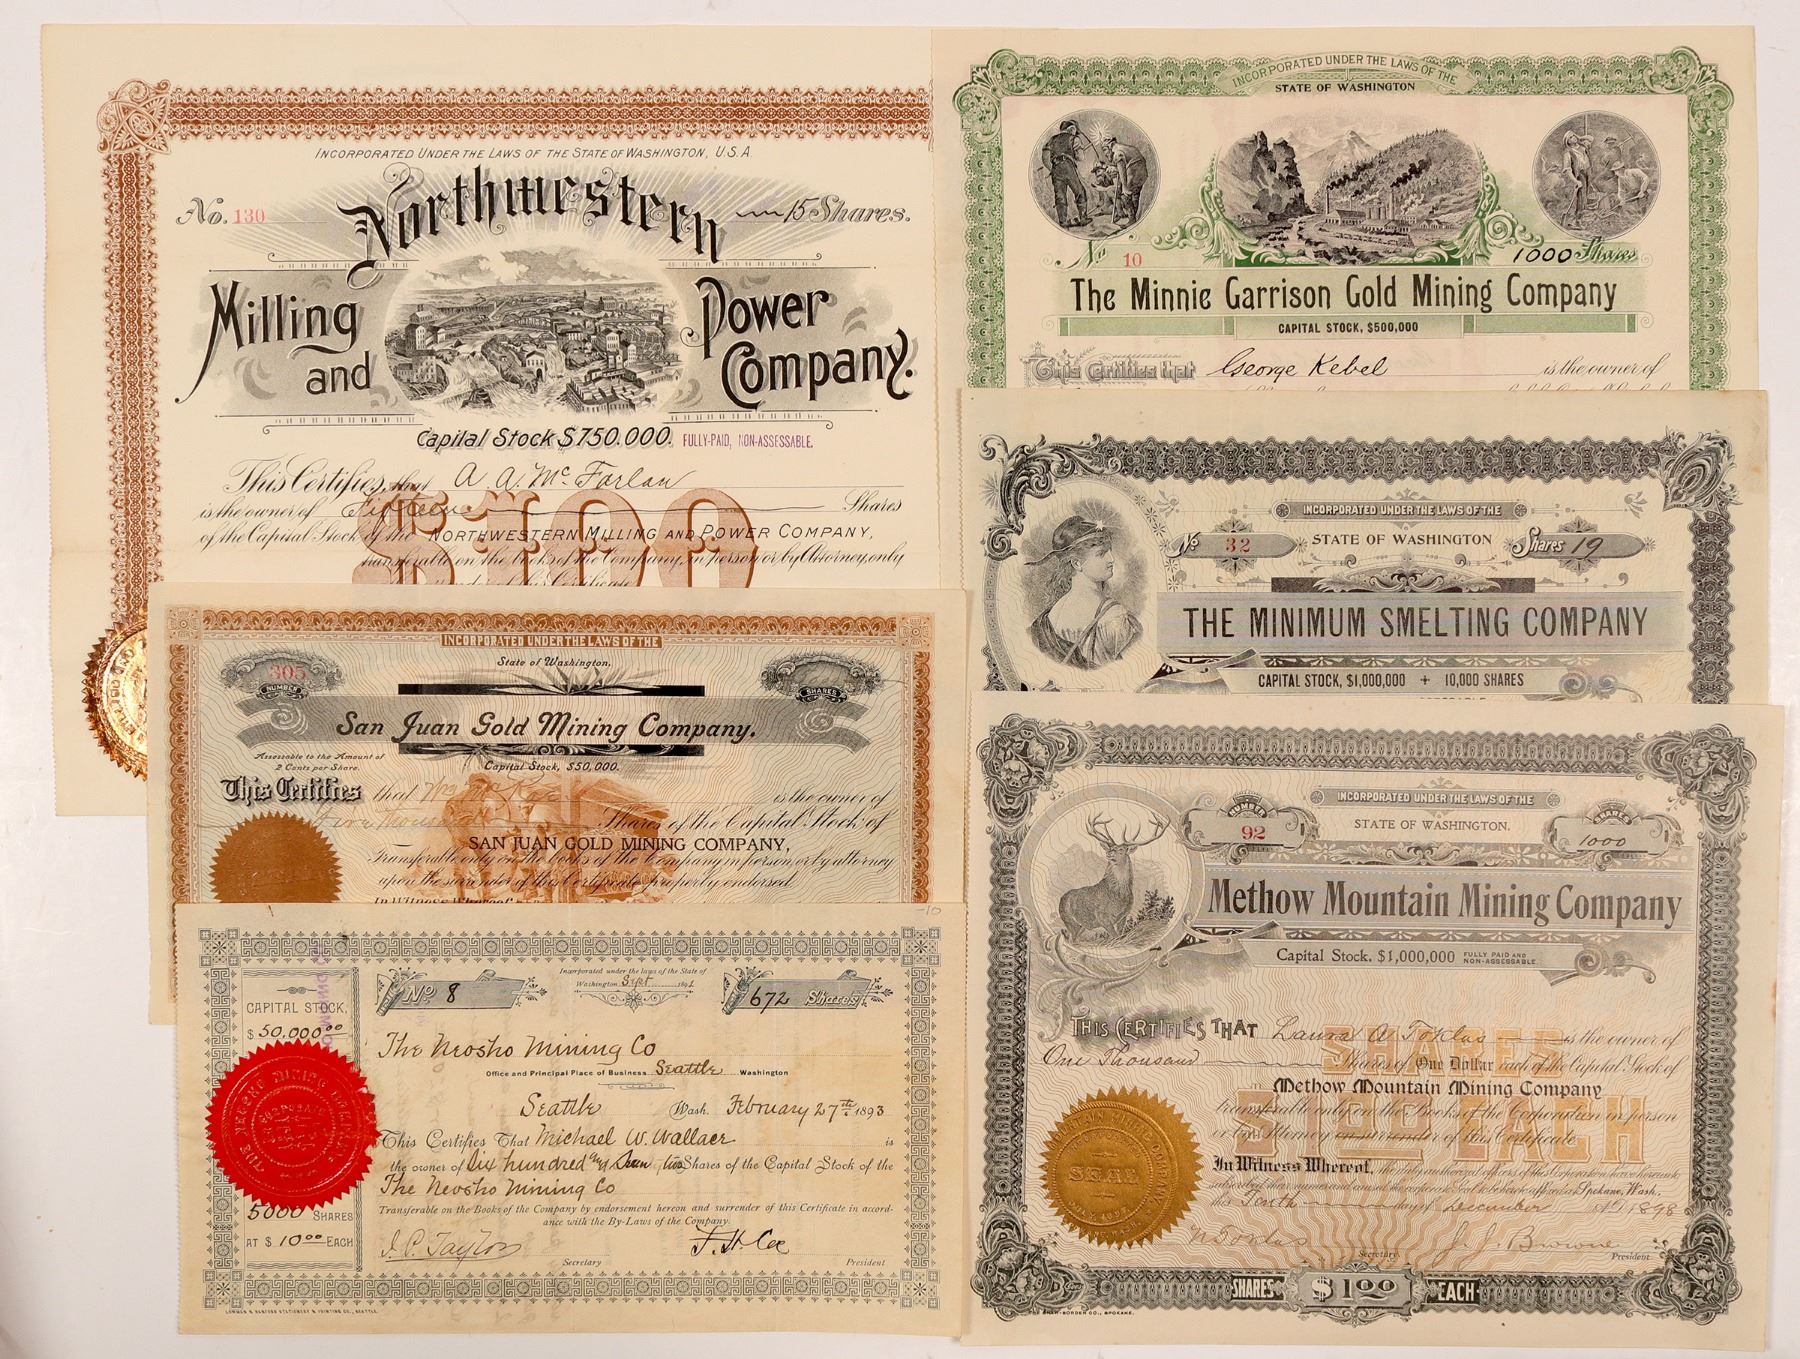 INCORPORATED UNDER THE LAWS OF THE STATE OF WASHINGTON, U.S.A.
No. 130
15 Shares.
Northwestern
Milling and Power Company.
Capital Stock $750.000. FULLY-PAID, NON-ASSESSABLE.
This Certifies, that A. A. McFarlan
is the owner of Fifteen Shares
of the Capital Stock of the NORTHWESTERN MILLING AND POWER COMPANY,
transferable on the books of the Company, in person or by Attorney, only
this Certificate
$100
INCORPORATED UNDER THE LAWS OF THE
State of Washington.
305
NUMBER
SHARES
San Juan Gold Mining Company.
Assessable to the Amount of
2 Cents per Share.
Capital Stock, $50,000.
This Certifies that Wm McKee is the owner of
Five Thousand Shares of the Capital Stock of
SAN JUAN GOLD MINING COMPANY,
Transferable only on the books of the Company in person, or by attorney
upon the surrender of this Certificate properly endorsed.
In Witness Whereof
-10
CAPITAL STOCK,
$50,000.00
5000 SHARES
AT $10.00 EACH
No 8
Incorporated under the laws of the State of
Washington Sept 1891
672 Shares
The Neosho Mining Co
Office and Principal Place of Business Seattle Washington
Seattle Wash. February 27th. 1893
This Certifies That Michael W. Wallace is
the owner of Six hundred and Seven two Shares of the Capital Stock of the
The Neosho Mining Co
Transferable on the Books of the Company by endorsement hereon and surrender of this Certificate in accord-
ance with the By-Laws of the Company.
J. C. Taylor
Secretary
F. H. Coe
President
THE NEOSHO MINING COMPANY
LOWMAN & HANFORD STATIONERY & PRINTING CO., SEATTLE
INCORPORATED UNDER THE LAWS OF THE
STATE OF WASHINGTON
No 10
1000 Shares
The Minnie Garrison Gold Mining Company
CAPITAL STOCK, $500,000
This Certifies that George Kebel is the owner of
INCORPORATED UNDER THE LAWS OF THE
STATE OF WASHINGTON
No 32
Shares 19
THE MINIMUM SMELTING COMPANY
CAPITAL STOCK, $1,000,000 + 10,000 SHARES
INCORPORATED UNDER THE LAWS OF THE
STATE OF WASHINGTON.
NUMBER
92
SHARES
1000
Methow Mountain Mining Company
Capital Stock, $1,000,000 FULLY PAID AND
NON-ASSESSABLE.
THIS CERTIFIES THAT Laura A Toklas is the owner of
One Thousand Shares of One Dollar each of the Capital Stock of
Methow Mountain Mining Company
transferable only on the Books of the Corporation in person
or by Attorney on surrender of this Certificate
In Witness Whereof, the duly authorized officers of this Corporation have hereunto
subscribed their names and caused the corporate Seal to be hereto affixed at Spokane, Wash.
this Tenth day of December A.D. 1898
N Toklas
Secretary
J. J. Browne
President
SEAL
SHARES $1.00 EACH
SHARES $1.00 EACH
THE SHAW-BORDEN CO., SPOKANE.